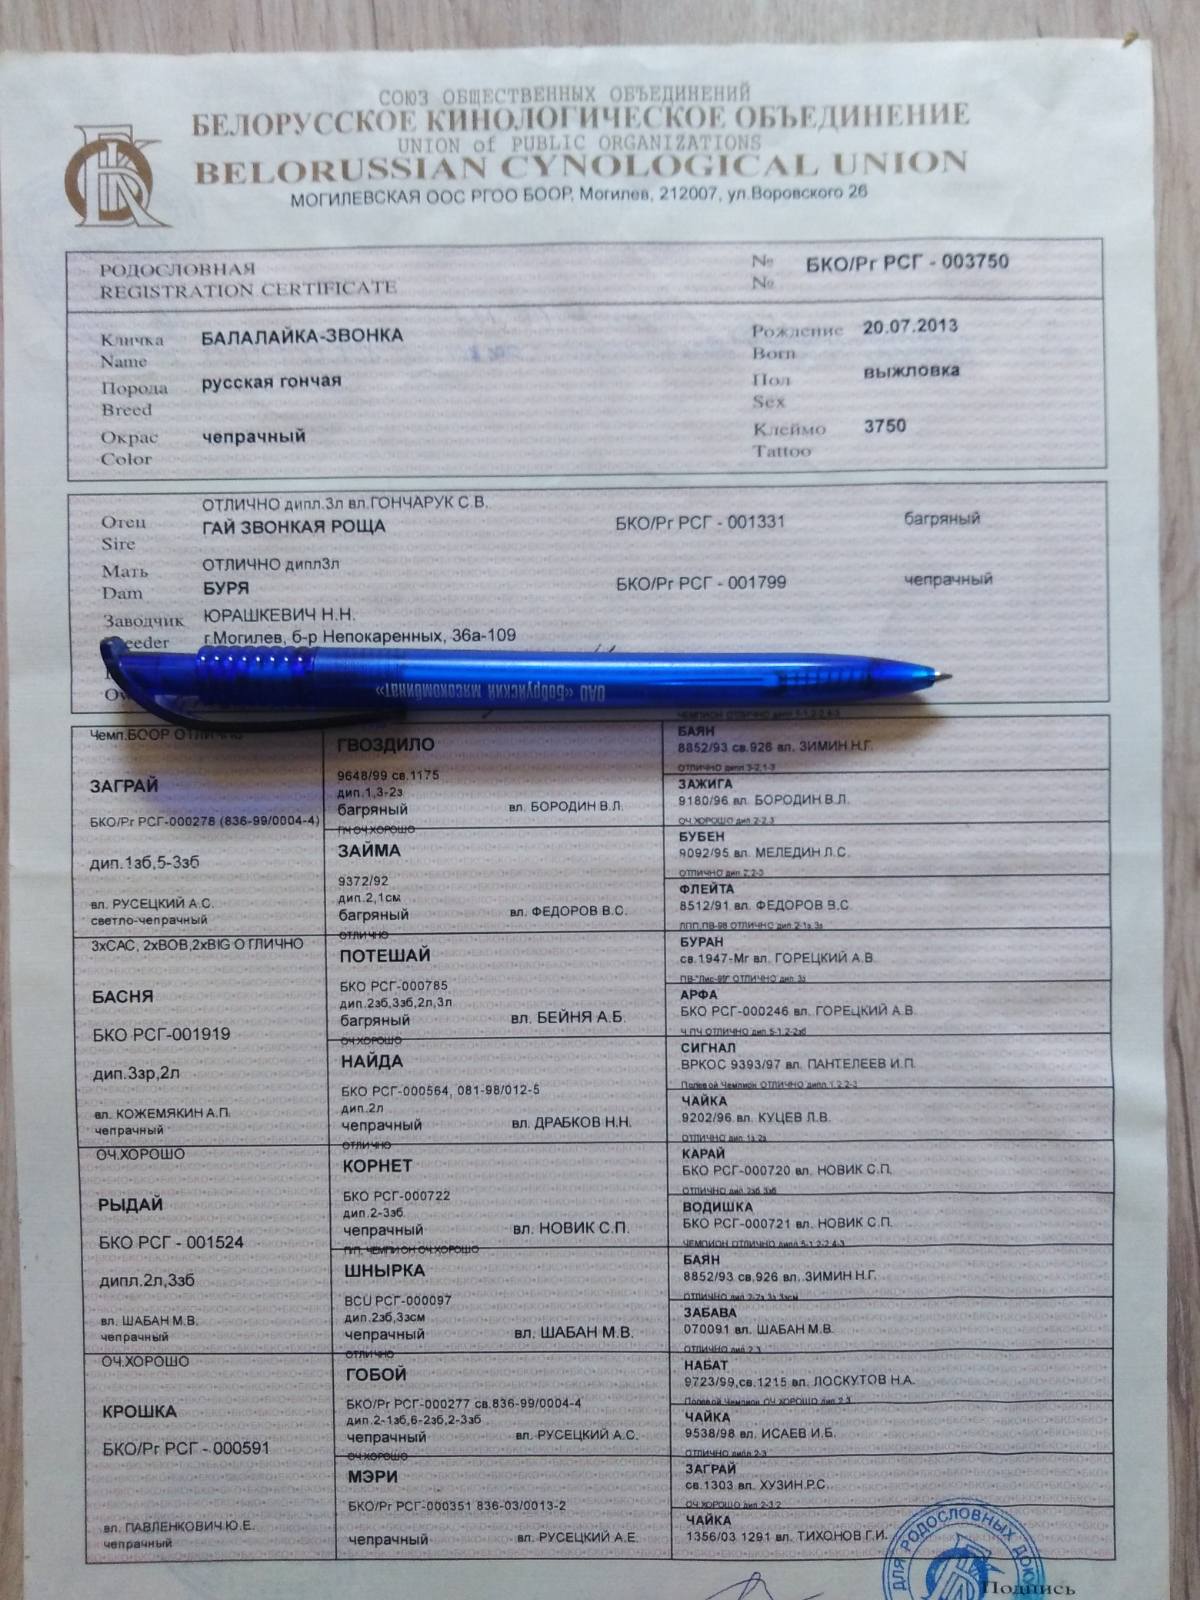 СОЮЗ ОБЩЕСТВЕННЫХ ОБЪЕДИНЕНИЙ
БЕЛОРУССКОЕ КИНОЛОГИЧЕСКОЕ ОБЪЕДИНЕНИЕ
UNION of PUBLIC ORGANIZATIONS
BELORUSSIAN CYNOLOGICAL UNION
МОГИЛЕВСКАЯ ООС РГОО БООР, Могилев, 212007, ул.Воровского 26
РОДОСЛОВНАЯ № БКО/Рг РСГ - 003750
REGISTRATION CERTIFICATE №
Кличка БАЛАЛАЙКА-ЗВОНКА Рождение 20.07.2013
Name Born
Порода русская гончая Пол выжловка
Breed Sex
Окрас чепрачный Клеймо 3750
Color Tattoo
ОТЛИЧНО дипл.3л вл.ГОНЧАРУК С.В.
Отец ГАЙ ЗВОНКАЯ РОЩА БКО/Рг РСГ - 001331 багряный
Sire
Мать ОТЛИЧНО дипл3л
Dam БУРЯ БКО/Рг РСГ - 001799 чепрачный
Заводчик ЮРАШКЕВИЧ Н.Н.
г.Могилев, б-р Непокаренных, 36а-109
ОАО «Бобруйский мясокомбинат»
Чемп.БООР ОТЛИЧНО
ЗАГРАЙ
БКО/Рг РСГ-000278 (836-99/0004-4)
дип.1зб,5-3зб
вл. РУСЕЦКИЙ А.С.
светло-чепрачный
3хСАС, 2хВОВ,2хBIG ОТЛИЧНО
БАСНЯ
БКО РСГ-001919
дип.3зр,2л
вл. КОЖЕМЯКИН А.П.
чепрачный
ОЧ.ХОРОШО
РЫДАЙ
БКО РСГ - 001524
дипл.2л,3зб
вл. ШАБАН М.В.
чепрачный
ОЧ.ХОРОШО
КРОШКА
БКО/Рг РСГ - 000591
вл. ПАВЛЕНКОВИЧ Ю.Е.
чепрачный
ГВОЗДИЛО
9648/99 св.1175
дип.1,3-2з
багряный вл. БОРОДИН В.Л.
ПЧ ОЧ.ХОРОШО
ЗАЙМА
9372/92
дип.2,1см
багряный вл. ФЕДОРОВ В.С.
ОТЛИЧНО
ПОТЕШАЙ
БКО РСГ-000785
дип.2зб,3зб,2л,3л
багряный вл. БЕЙНЯ А.Б.
ОЧ.ХОРОШО
НАЙДА
БКО РСГ-000564, 081-98/012-5
дип.2л
чепрачный вл. ДРАБКОВ Н.Н.
ОТЛИЧНО
КОРНЕТ
БКО РСГ-000722
дип.2-3зб
чепрачный вл. НОВИК С.П.
ЧЕМПИОН ОЧ.ХОРОШО
ШНЫРКА
BCU РСГ-000097
дип.2зб,3зсм
чепрачный вл. ШАБАН М.В.
ОТЛИЧНО
ГОБОЙ
БКО/Рг РСГ-000277 св.836-99/0004-4
дип.2-1зб,6-2зб,2-3зб
чепрачный вл. РУСЕЦКИЙ А.С.
ОЧ.ХОРОШО
МЭРИ
БКО/Рг РСГ-000351 836-03/0013-2
чепрачный вл. РУСЕЦКИЙ А.Е.
БАЯН
8852/93 св.926 вл. ЗИМИН Н.Г.
ОТЛИЧНО дип 3-2,1-3
ЗАЖИГА
9180/96 вл. БОРОДИН В.Л.
ОЧ.ХОРОШО дип 2-2.3
БУБЕН
9092/95 вл. МЕЛЕДИН Л.С.
ОТЛИЧНО дип 2,2-3
ФЛЕЙТА
8512/91 вл. ФЕДОРОВ В.С.
БУРАН
св.1947-Мг вл. ГОРЕЦКИЙ А.В.
АРФА
БКО РСГ-000246 вл. ГОРЕЦКИЙ А.В.
СИГНАЛ
ВРКОС 9393/97 вл. ПАНТЕЛЕЕВ И.П.
Полевой Чемпион ОТЛИЧНО
ЧАЙКА
9202/96 вл. КУЦЕВ Л.В.
ОТЛИЧНО дип. 1з 2з
КАРАЙ
БКО РСГ-000720 вл. НОВИК С.П.
ОТЛИЧНО дип. 2зб 3зб
ВОДИШКА
БКО РСГ-000721 вл. НОВИК С.П.
ЧЕМПИОН ОТЛИЧНО дипл 5-1 2-2 4-3
БАЯН
8852/93 св.926 вл. ЗИМИН Н.Г.
ЗАБАВА
070091 вл. ШАБАН М.В.
ОТЛИЧНО дип 2 3
НАБАТ
9723/99,св.1215 вл. ЛОСКУТОВ Н.А.
Полевой Чемпион ОЧ ХОРОШО
ЧАЙКА
9538/98 вл. ИСАЕВ И.Б.
ОТЛИЧНО дипл 2-3
ЗАГРАЙ
св.1303 вл. ХУЗИН Р.С.
ОЧ ХОРОШО дип 2-3.2
ЧАЙКА
1356/03 1291 вл. ТИХОНОВ Г.И.
ДЛЯ РОДОСЛОВНЫХ
Подпись